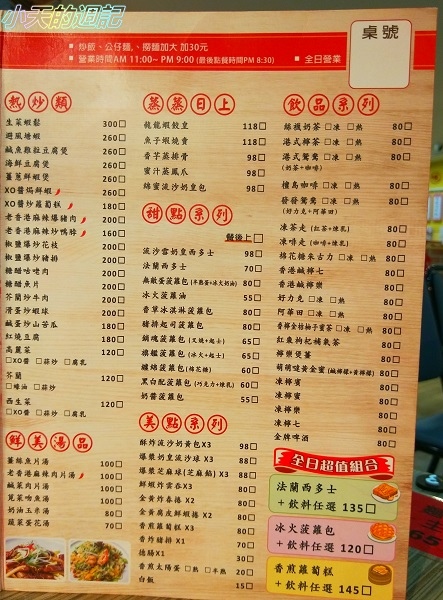 小天的週記
桌號
■ 炒飯、公仔麵、撈麵加大 加30元
■ 營業時間AM 11:00~ PM 9:00 (最後點餐時間PM 8:30) ■ 全日營業
熱炒類
生菜蝦鬆 300□
避風塘蝦 260□
鹹魚雞粒豆腐煲 260□
海鮮豆腐煲 260□
薑蔥鮮蝦煲 260□
XO醬焗鮮蝦 260□
XO醬炒蘿蔔糕 180□
老香港麻辣爆豬肉 200□
老香港麻辣炒鴨脖 160□
椒鹽爆炒花枝 200□
椒鹽爆炒豬排 200□
糖醋咕咾肉 200□
糖醋魚片 200□
芥蘭炒牛肉 200□
滑蛋炒蝦球 200□
鹹蛋炒山苦瓜 180□
紅燒豆腐 180□
高麗菜 120□
□XO醬 □蒜炒 □腐乳
芥蘭 120□
□蠔油 □蒜炒
西生菜 120□
□XO醬 □蒜炒 □腐乳
鮮美湯品
薑絲魚片湯 100□
老香港麻辣肉片湯 100□
鹹菜肉片湯 100□
莧菜吻魚湯 80□
奶油玉米湯 80□
蔬菜蛋花湯 70□
蒸蒸日上
龍龍蝦餃皇 118□
魚子蝦燒賣 118□
香芋蒸排骨 98□
蜜汁蒸鳳爪 98□
綿蜜流沙奶皇包 98□
甜點系列
餐後上□
流沙雲奶皇西多士 98□
法蘭西多士 70□
無敵蛋菠蘿包(半熟蛋+冰火奶油) 80□
冰火菠蘿油 55□
香草冰淇淋菠蘿包 80□
豬排起司菠蘿包 80□
鍋魂菠蘿包(叉燒+起士) 65□
旗艦菠蘿包(冰火+起士) 65□
纏綿菠蘿包(棉花糖) 60□
黑白配菠蘿包(巧克力+煉乳) 60□
奶醬菠蘿包 55□
美點系列
酥炸流沙奶黃包X3 98□
爆漿奶皇流沙球X3 88□
爆漿芝麻球(芝麻餡)X3 88□
鮮蝦炸雲吞X3 80□
金黃炸春捲X2 80□
金黃腐皮鮮蝦捲X2 80□
香煎蘿蔔糕X3 80□
香炸豬排X1 50□
德腸X1 30□
香煎太陽蛋 □熟 □半熟 20□
白飯 15□
飲品系列
絲襪奶茶 □凍 □熱 80□
港式檸茶 □凍 □熱 80□
港式鴛鴦 □凍 □熱 80□
(奶茶+咖啡)
檀島咖啡 □凍 □熱 80□
發發鴛鴦 □凍 □熱 80□
(好力克+阿華田)
凍茶走(紅茶+煉乳) 80□
凍啡走(咖啡+煉乳) 80□
棉花糖朱古力 □凍 □熱 80□
香港鹹檸七 80□
香港鹹檸樂 80□
好力克 □凍 □熱 80□
阿華田 □凍 □熱 80□
香檸金桔柚子蜜 □凍 □熱 80□
紅棗枸杞補氣茶 80□
檸樂煲薑 80□
萌萌噠黃金蜜(鹹檸檬+黃檸檬) 80□
凍檸蜜 80□
凍檸賓 80□
凍檸樂 80□
凍檸七 80□
金牌啤酒 80□
全日超值組合
法蘭西多士
+飲料任選 135□
冰火菠蘿包
+飲料任選 120□
香煎蘿蔔糕
+飲料任選 145□